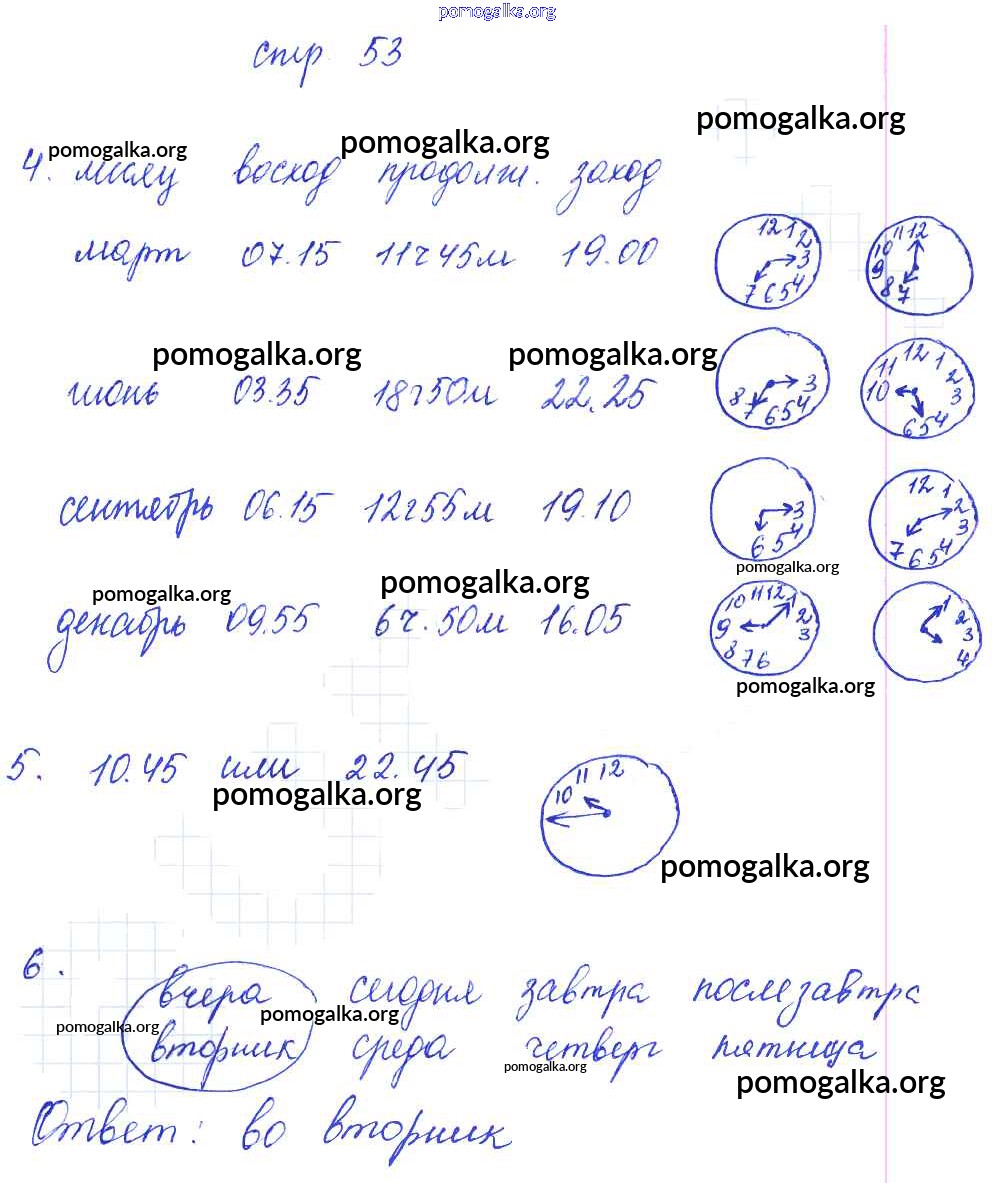 pomogalka.org
стр. 53
pomogalka.org pomogalka.org pomogalka.org
4. месяц восход продолж. заход
март 07.15 11ч45м 19.00
12 1 2 3 4 5 6 7
12 11 10 9 8 7
pomogalka.org pomogalka.org
июнь 03.35 18г50м 22.25
3 4 5 6 7 8
12 1 2 3 4 5 6 10 11
сентябрь 06.15 12г55м 19.10
3 4 5 6
12 1 2 3 4 5 6 7
pomogalka.org pomogalka.org pomogalka.org
декабрь 09.55 6ч.50м 16.05
10 11 12 1 2 3 6 7 8 9
1 2 3 4
pomogalka.org
5. 10.45 или 22.45
10 11 12
pomogalka.org
pomogalka.org
6.
вчера сегодня завтра послезавтра
pomogalka.org pomogalka.org
вторник среда четверг пятница
pomogalka.org pomogalka.org
Ответ: во вторник